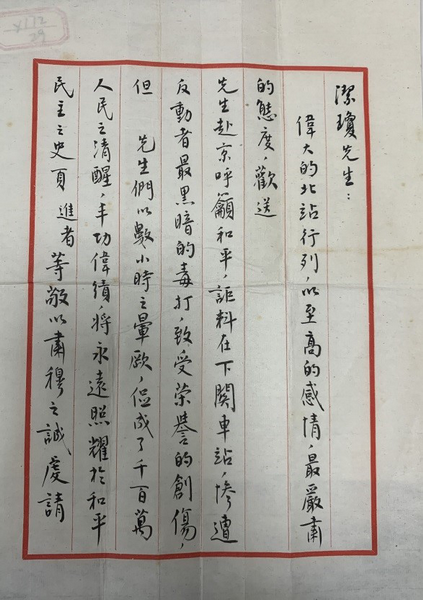 潔瓊先生：
偉大的北站行列，以至高的感情，最嚴肅
的態度，歡送
先生赴京呼籲和平，詎料在下關車站，慘遭
反動者最黑暗的毒打，致受榮譽的創傷，
但　先生們以數小時之暈厥，促成了千百萬
人民之清醒，丰功偉績，將永遠照耀於和平
民主之史頁　進者等敬以肅穆之誠虔請